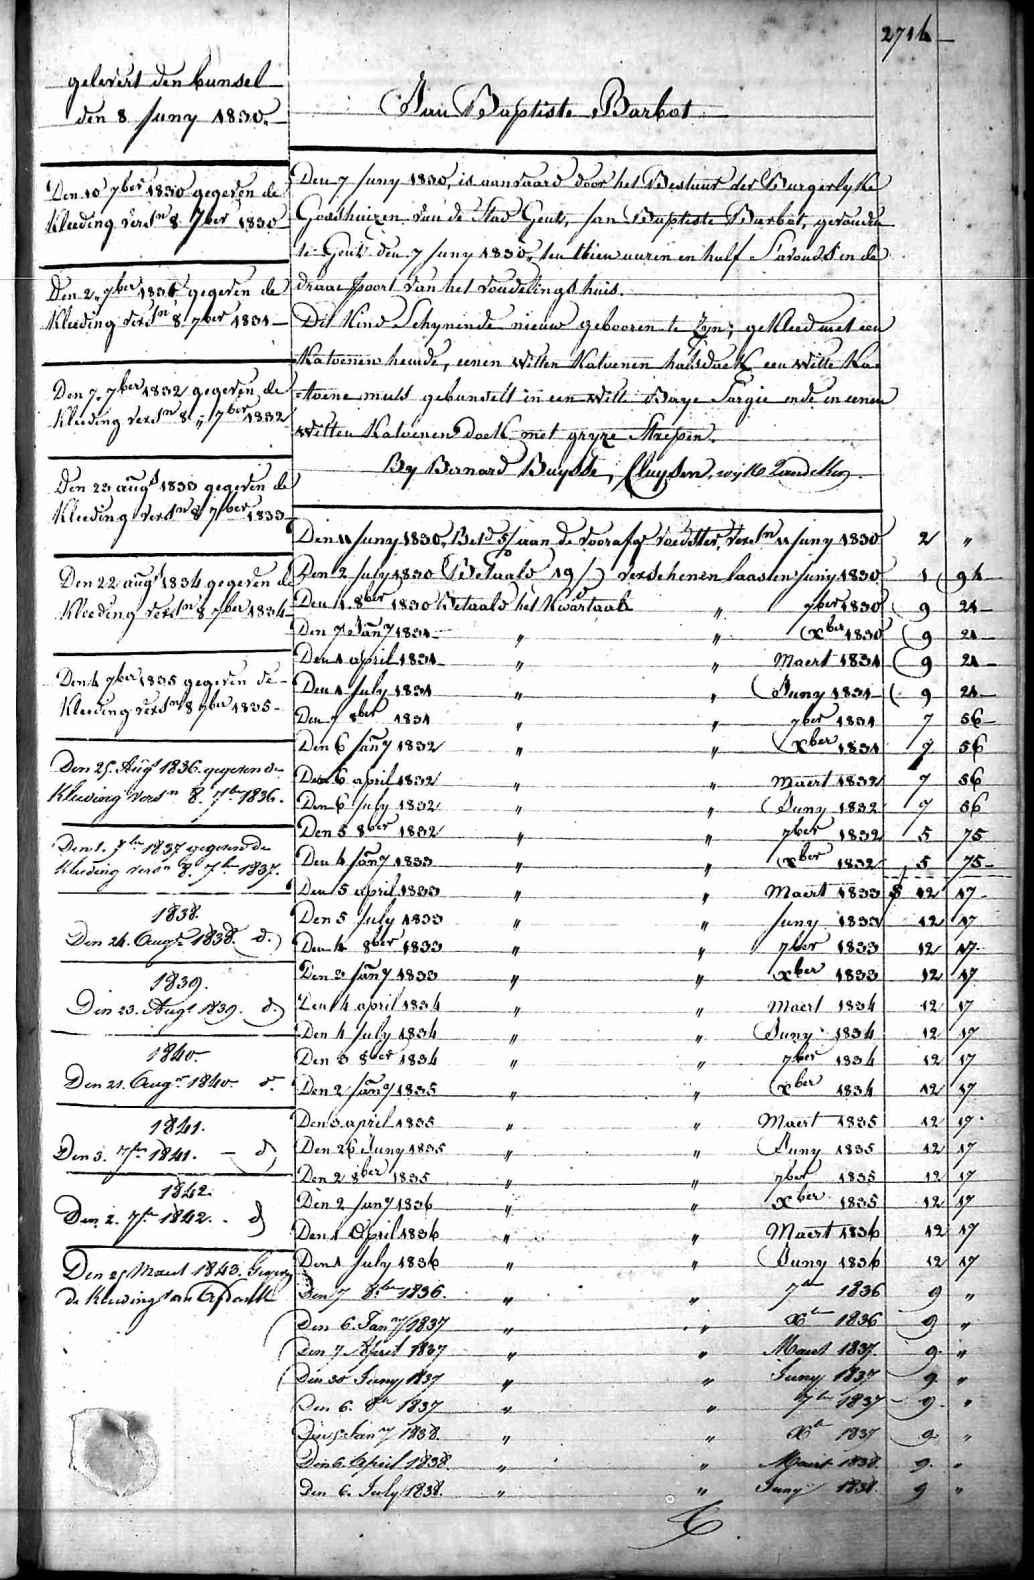 2716
gelevert den bunsel
den 8 Juny 1830.
Jan Baptiste Barbot
Den 10 7ber 1830 gegeven de
Kleeding versn 8 7ber 1830
Den 2 7ber 1831 gegeven de
Kleeding versn 8. 7ber 1831
Den 7. 7ber 1832 gegeven de
Kleeding versn 8 7ber 1832
Den 23 augt 1833 gegeven de
Kleeding versn 8 7ber 1833
Den 22 augt 1834 gegeven de
Kleeding versn 8 7ber 1834
Den 4 7ber 1835 gegeven de
Kleeding versn 8 7ber 1835
Den 25. Augt 1836 gegeven de
Kleeding versn 8. 7b 1836.
Den 1. 7ber 1837 gegeven de
Kleeding versn 8. 7b 1837.
1838.
Den 24. Augt 1838. d.
1839.
Den 23. Augt 1839. d.
1840.
Den 21. Augt 1840. d.
1841.
Den 3. 7br 1841. — d
1842.
Den 2. 7br 1842. d
Den 25 Maart 1843. Gegeven
de Kleeding van
Den 7 Juny 1830, is aanvaard door het Bestuur der Burgerlyke
Godshuizen van de Stad Gent, Jan Baptiste Barbot, gevonden
te Gent den 7 Juny 1830, ten thien uuren en half s'avonds in de
draaepoort van het vondelingshuis.
Dit Kind Schynende nieuw gebooren te Zyn, gekleed met een
Katoenen hemde, eenen witten Katoenen halsdoek een witte Ka=
=toene muts gebunselt in een witte Baye Sargie ende in eenen
witten Katoenen Doek met gryze Strepen.
By Bernard Buysse, Cluysen, wyk
Den 11 Juny 1830, Betd aan de voorafge voedster, versn 11 Juny 1830 2 "
Den 2 July 1830 Betaald 19 verschenen laasten Juny 1830 1 94
Den 1 8ber 1830 Betaald het Kwartaal " 7ber 1830 9 24
Den 7 Jany 1831 " " Xber 1830 9 24
Den 1 april 1831 " " Maert 1831 9 24
Den 1 July 1831 " " Juny 1831 9 24
Den 7 8ber 1831 " " 7ber 1831 7 56
Den 6 Jany 1832 " " Xber 1831 7 56
Den 6 april 1832 " " Maert 1832 7 56
Den 6 July 1832 " " Juny 1832 7 56
Den 5 8ber 1832 " " 7ber 1832 5 75
Den 4 Jany 1833 " " Xber 1832 5 75
Den 5 april 1833 " " Maert 1833 12 17
Den 5 July 1833 " " Juny 1833 12 17
Den 4 8ber 1833 " " 7ber 1833 12 17
Den 3 Jany 1833 " " Xber 1833 12 17
Den 4 april 1834 " " Maert 1834 12 17
Den 4 July 1834 " " Juny 1834 12 17
Den 3 8ber 1834 " " 7ber 1834 12 17
Den 2 Jany 1835 " " Xber 1834 12 17
Den 3 april 1835 " " Maert 1835 12 17
Den 26 Juny 1835 " " Juny 1835 12 17
Den 2 8ber 1835 " " 7ber 1835 12 17
Den 2 Jany 1836 " " Xber 1835 12 17
Den 1 April 1836 " " Maert 1836 12 17
Den 1 July 1836 " " Juny 1836 12 17
Den 7 8br 1836. " " 7br 1836 9 "
Den 6. Jany 1837 " " Xbr 1836 9 "
Den 7 April 1837 " " Maert 1837. 9 "
Den 30 Juny 1837 " " Juny 1837 9 "
Den 6. 8br 1837 " " 7br 1837 9 "
Den 5 Jany 1838. " " Xbr 1837 9 "
Den 6 April 1838. " " Maert 1838. 9 "
Den 6. July 1838. " " Juny 1838. 9 "